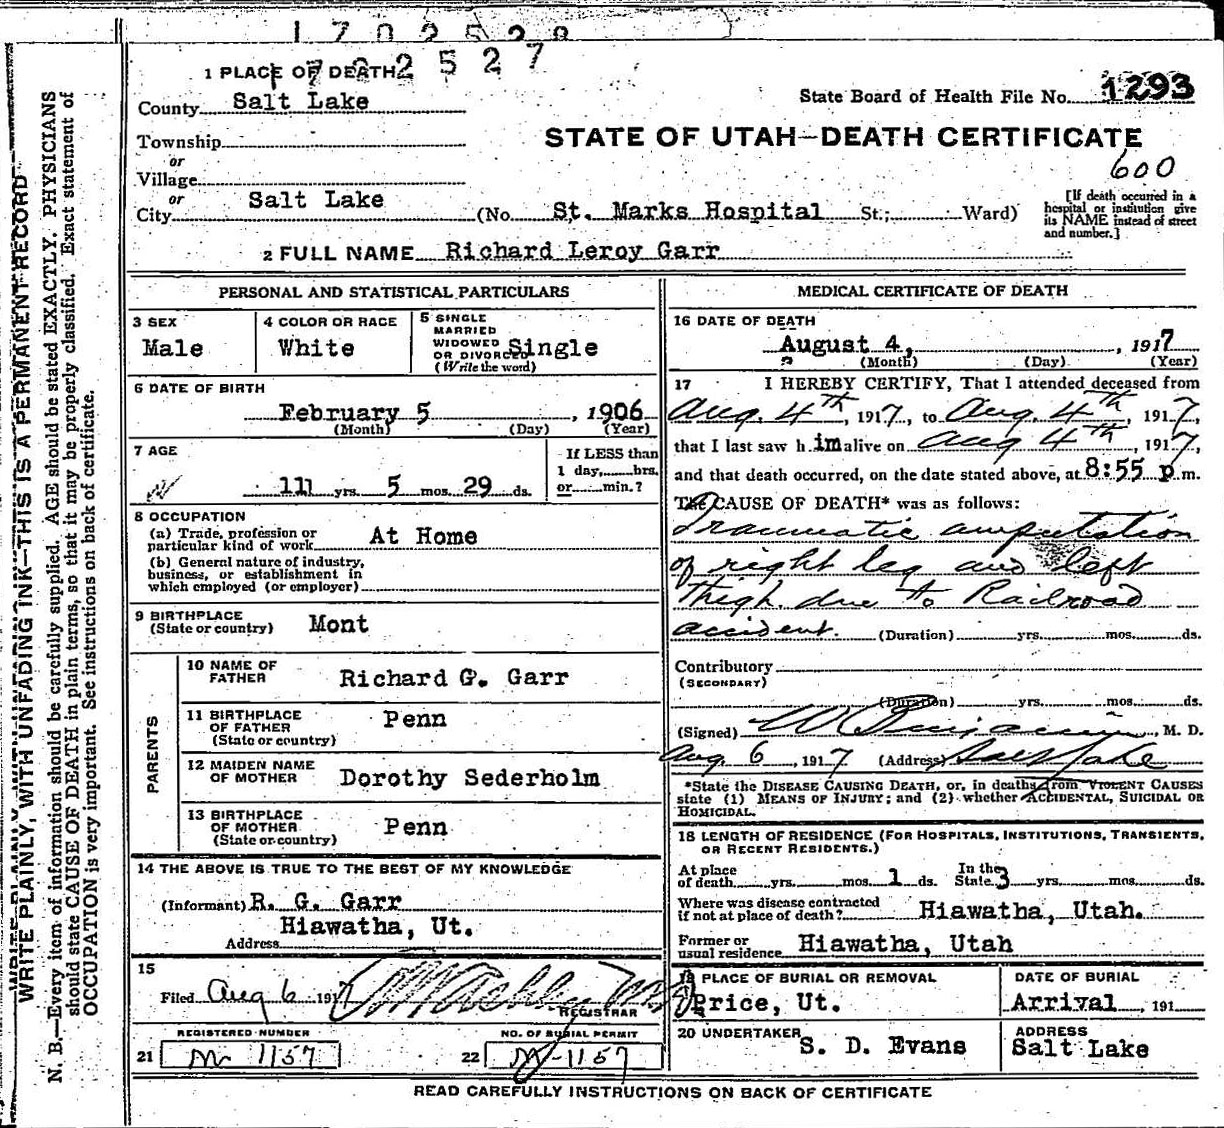 1702528
1702527
1 PLACE OF DEATH
County Salt Lake
State Board of Health File No. 1293
Township
or
Village
or
City Salt Lake
STATE OF UTAH—DEATH CERTIFICATE
600
(No. St. Marks Hospital St.; Ward)
[If death occurred in a
hospital or institution give
its NAME instead of street
and number.]
2 FULL NAME Richard Leroy Garr
PERSONAL AND STATISTICAL PARTICULARS
3 SEX
Male
4 COLOR OR RACE
White
5 SINGLE
MARRIED
WIDOWED
OR DIVORCED Single
(Write the word)
6 DATE OF BIRTH
February 5, 1906
(Month) (Day) (Year)
7 AGE
11 yrs. 5 mos. 29 ds.
If LESS than
1 day, hrs.
or min.?
8 OCCUPATION
(a) Trade, profession or
particular kind of work At Home
(b) General nature of industry,
business, or establishment in
which employed (or employer)
9 BIRTHPLACE
(State or country) Mont
PARENTS
10 NAME OF
FATHER Richard G. Garr
11 BIRTHPLACE
OF FATHER Penn
(State or country)
12 MAIDEN NAME
OF MOTHER Dorothy Sederholm
13 BIRTHPLACE
OF MOTHER Penn
(State or country)
14 THE ABOVE IS TRUE TO THE BEST OF MY KNOWLEDGE
(Informant) R. G. Garr
Hiawatha, Ut.
Address
15
Filed Aug 6 1917
REGISTRAR
REGISTERED NUMBER
21 M 1157
NO. OF BURIAL PERMIT
22 M-1157
MEDICAL CERTIFICATE OF DEATH
16 DATE OF DEATH
August 4, , 1917
(Month) (Day) (Year)
17 I HEREBY CERTIFY, That I attended deceased from
Aug. 4th, 1917, to Aug. 4th, 1917,
that I last saw h im alive on Aug 4th, 1917,
and that death occurred, on the date stated above, at 8:55 p.m.
The CAUSE OF DEATH* was as follows:
Traumatic amputation
of right leg and left
thigh due to Railroad
accident. (Duration) yrs. mos. ds.
Contributory
(SECONDARY)
(Duration) yrs. mos. ds.
(Signed) , M. D.
Aug 6, 1917 (Address) Salt Lake
*State the DISEASE CAUSING DEATH, or, in deaths from VIOLENT CAUSES
state (1) MEANS OF INJURY; and (2) whether ACCIDENTAL, SUICIDAL OR
HOMICIDAL.
18 LENGTH OF RESIDENCE (FOR HOSPITALS, INSTITUTIONS, TRANSIENTS,
OR RECENT RESIDENTS.)
At place
of death yrs. mos. 1 ds. In the State 3 yrs. mos. ds.
Where was disease contracted
if not at place of death? Hiawatha, Utah.
Former or
usual residence Hiawatha, Utah
19 PLACE OF BURIAL OR REMOVAL
Price, Ut.
DATE OF BURIAL
Arrival , 191
20 UNDERTAKER
S. D. Evans
ADDRESS
Salt Lake
READ CAREFULLY INSTRUCTIONS ON BACK OF CERTIFICATE
WRITE PLAINLY, WITH UNFADING INK—THIS IS A PERMANENT RECORD
N. B.—Every item of information should be carefully supplied. AGE should be stated EXACTLY. PHYSICIANS
should state CAUSE OF DEATH in plain terms, so that it may be properly classified. Exact statement of
OCCUPATION is very important. See instructions on back of certificate.